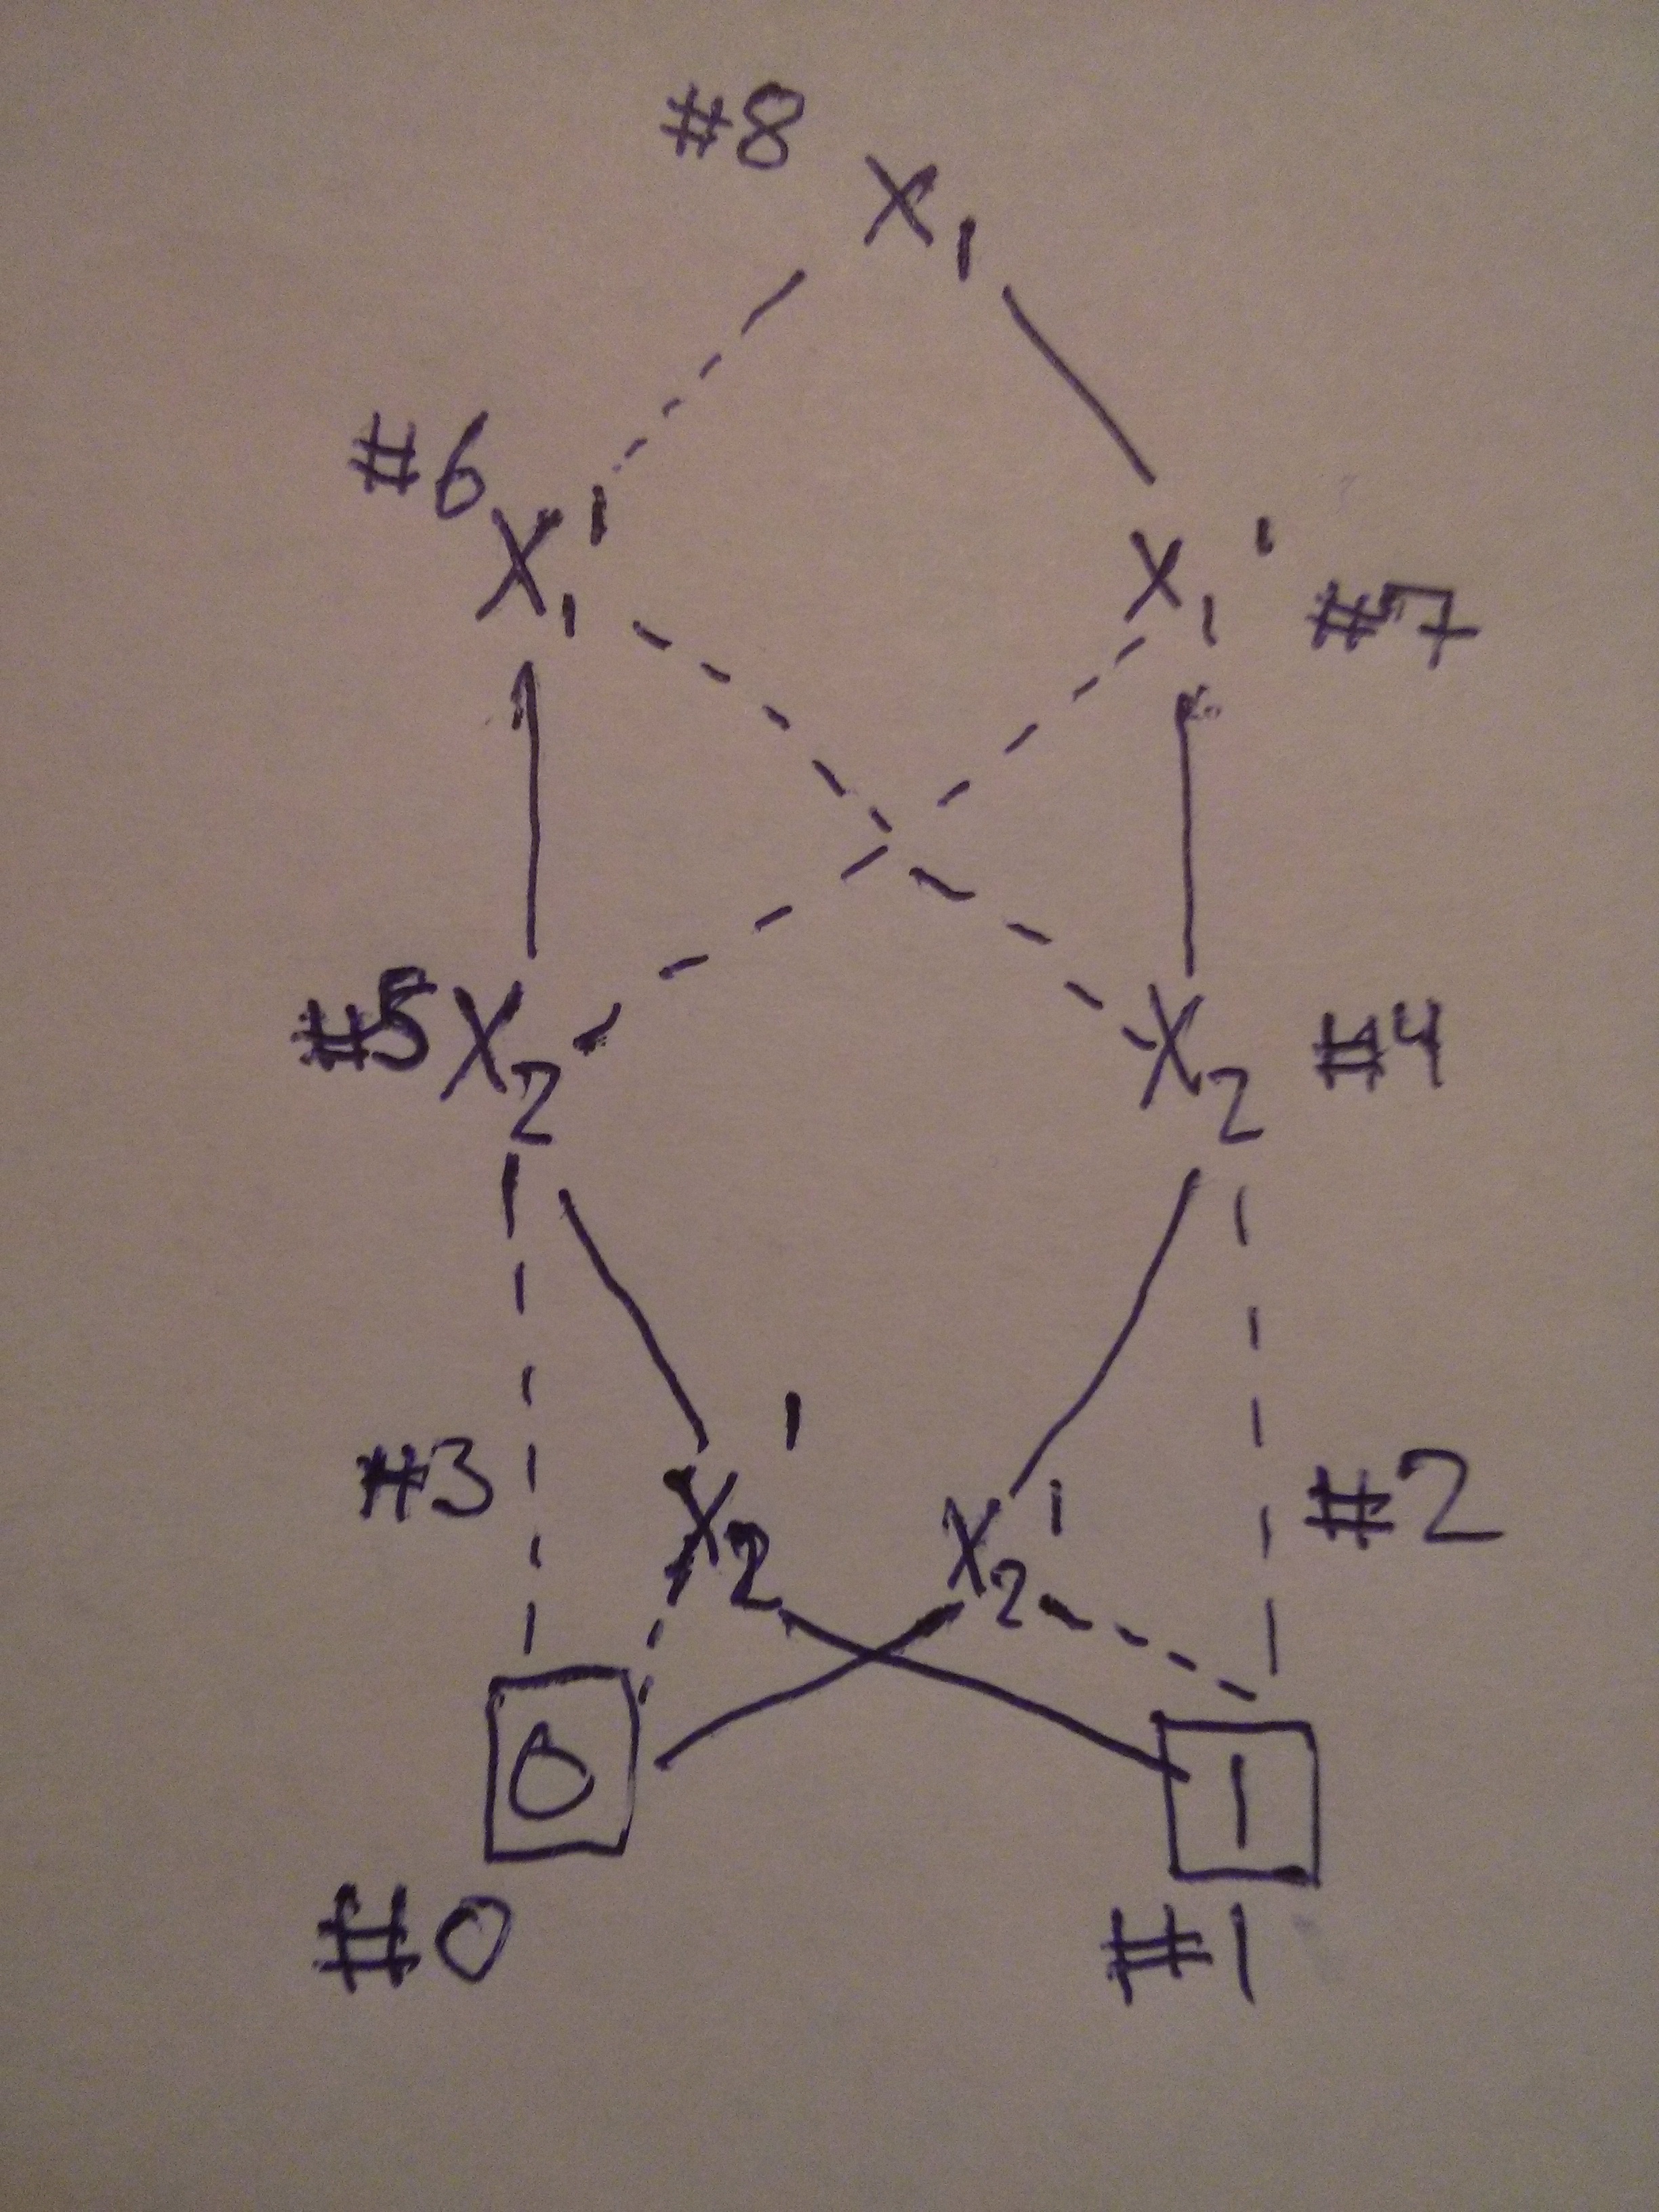 #8 X₁
#6 X₁' X₁' #7
#5 X₂ X₂ #4
#3 X₂' X₂' #2
0 1
#0 #1